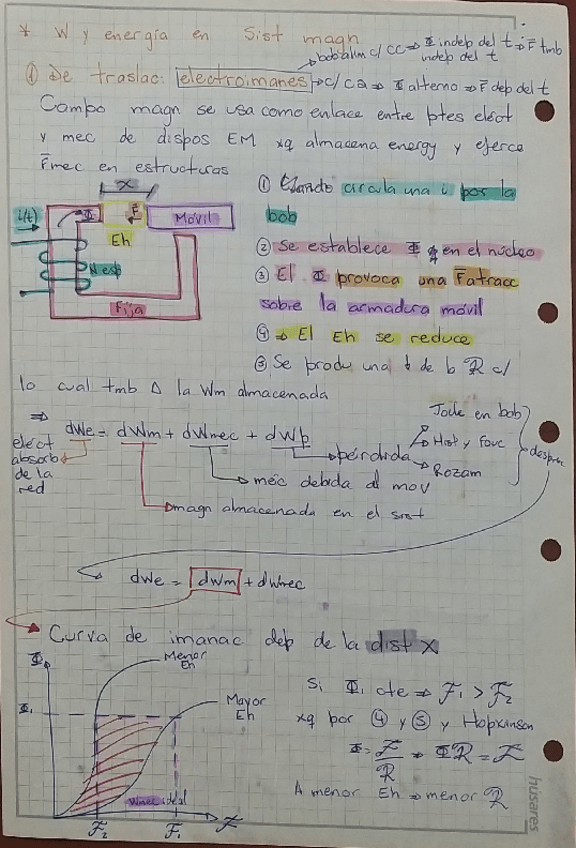 * W y energía en Sist magn
bob alim c/ CC ⇒ Φ indep del t ⇒ F̄ tmb
indep del t
① De traslac: electroimanes → c/ ca ⇒ Φ alterno ⇒ F̄ dep del t
Campo magn se usa como enlace entre ptes eléct
y mec de dispos EM xq almacena energy y ejerce
F̄mec en estructuras
X
i(t)
Φ
F̄
Móvil
Eh
N esp
Fija
① Cuando circula una i por la
bob
② Se establece Φ en el núcleo
③ El Φ provoca una F̄atracc
sobre la armadura móvil
④ ⇒ El Eh se reduce
⑤ Se produ una ↓ de ℛ c/
lo cual tmb Δ la Wm almacenada
⇒ dWe = dWm + dWmec + dWp
eléct
absorb
de la
red
pérdida
Joule en bob
Hist y Fouc
Rozam
desprec
mec debida al mov
magn almacenada en el sist
dWe = dWm + dWmec
Curva de imanac dep de la dist X
Φ
Menor
Eh
Mayor
Eh
Φ₁
Wmec ideal
ℱ₂
ℱ₁
ℱ
Si Φ₁ cte ⇒ ℱ₁ > ℱ₂
xq por ④ y ⑤ y Hopkinson
Φ = ℱ/ℛ ⇒ Φℛ = ℱ
A menor Eh ⇒ menor ℛ
husares